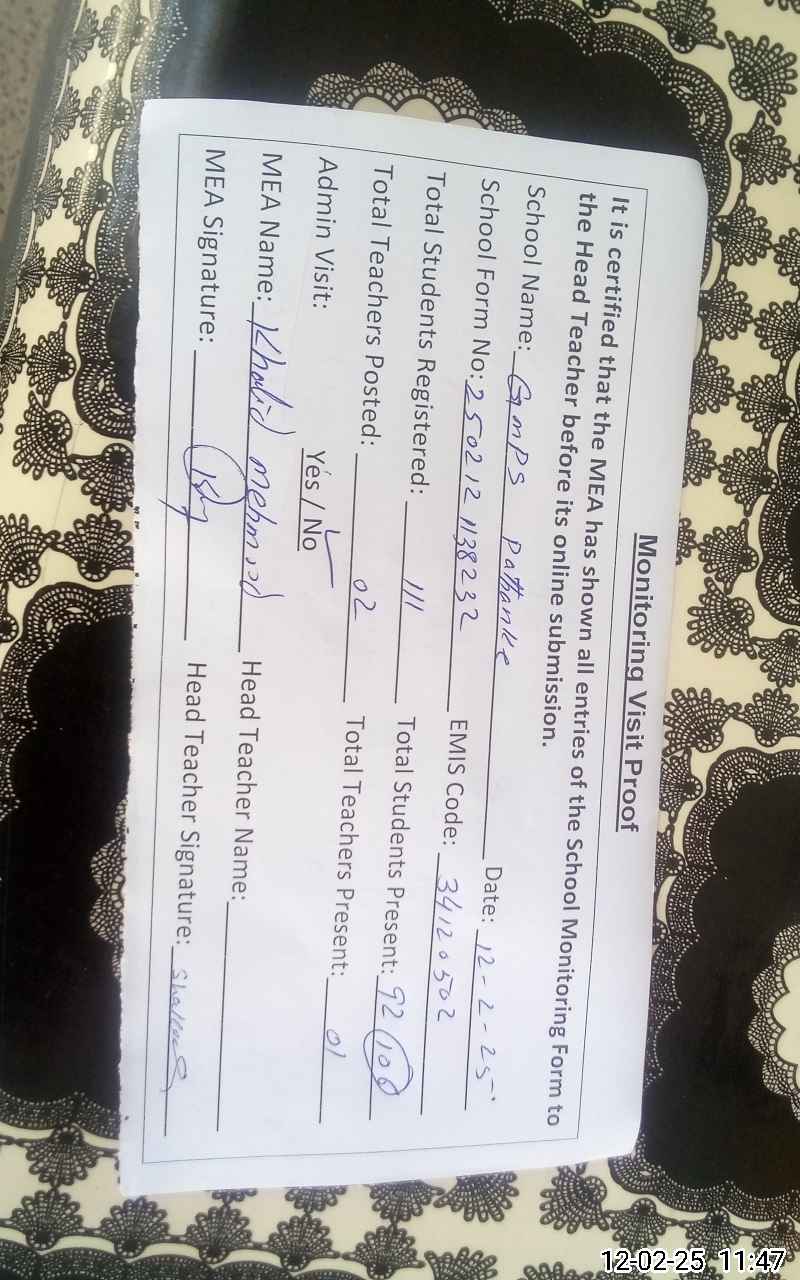 Monitoring Visit Proof
It is certified that the MEA has shown all entries of the School Monitoring Form to
the Head Teacher before its online submission.
School Name: Gmps Pathanke Date: 12-2-25
School Form No: 250212 1138232 EMIS Code: 34120502
Total Students Registered: 111 Total Students Present: 92 100
Total Teachers Posted: 02 Total Teachers Present: 01
Admin Visit: Yes / No
MEA Name: Khalid Mehmood Head Teacher Name:
MEA Signature: Head Teacher Signature:
12-02-25 11:47